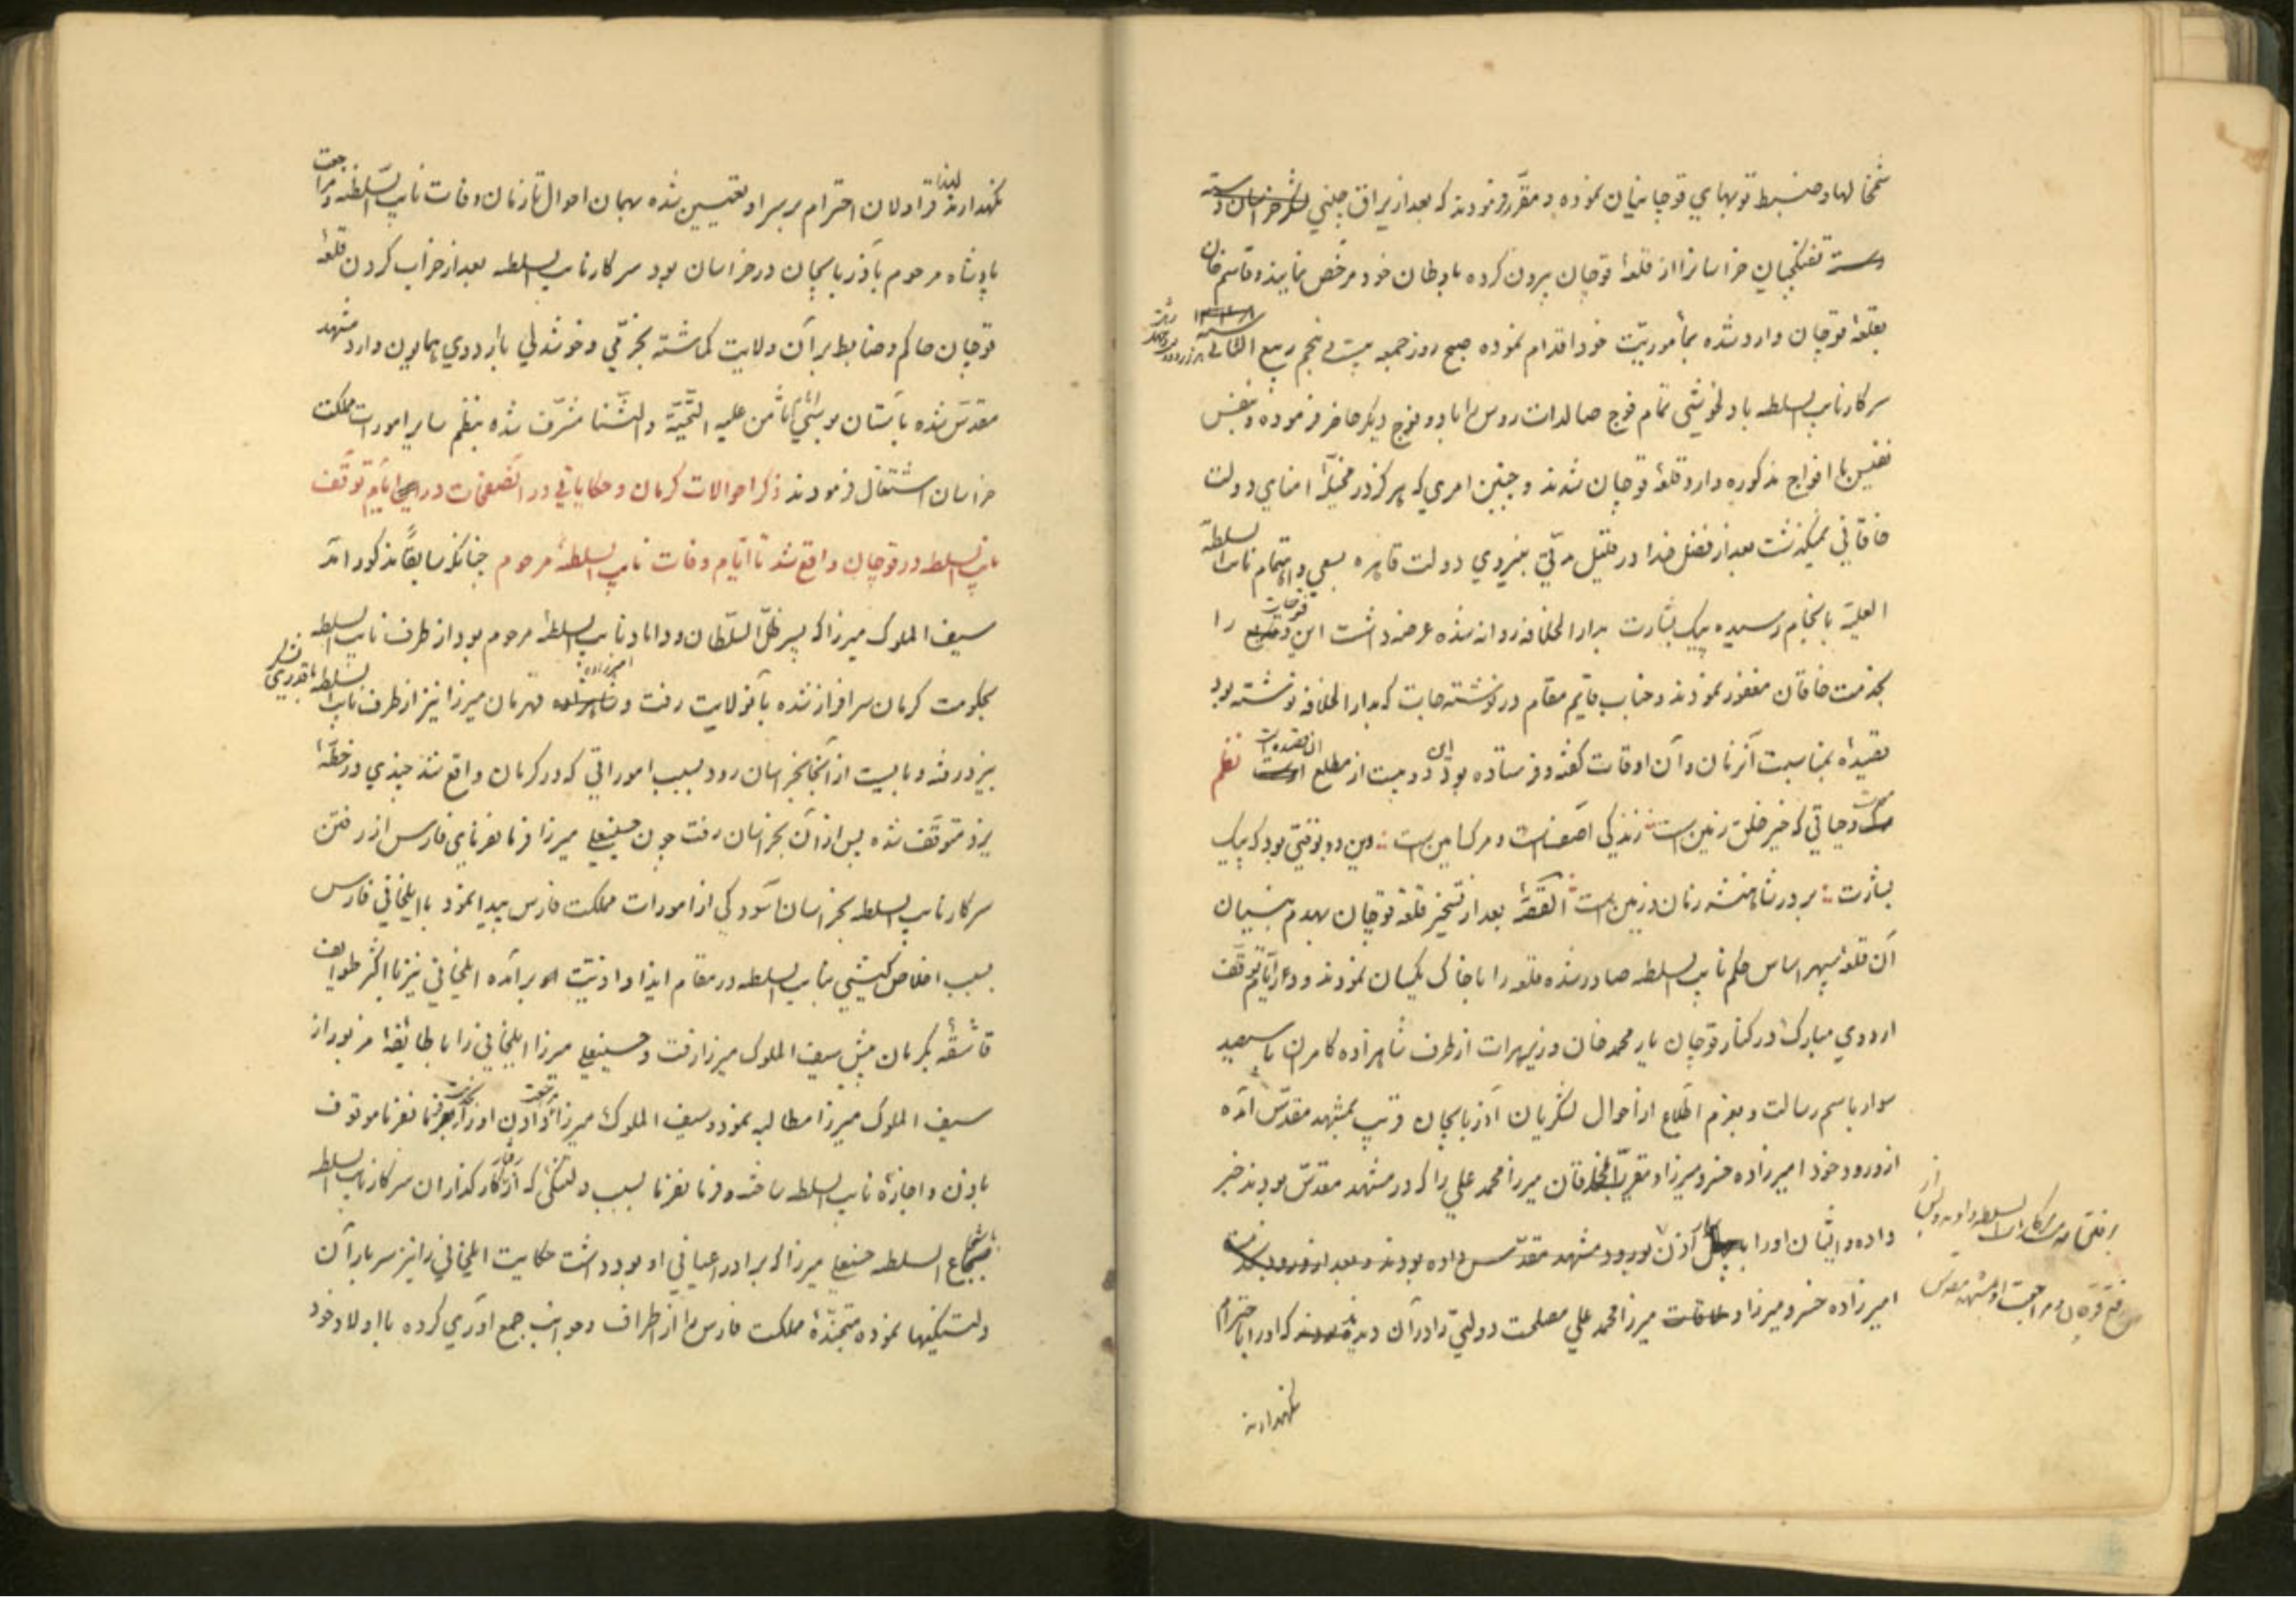 شمخالها و ضبط توپهای قوچانیان نموده و مقرر فرمودند که بعد از یراق چینی لشکر خراسان و
دسته دسته تفنگچیان خراسانرا از قلعهٔ قوچان بیرون کرده باوطان خود مرخص نمایند و قاسم خان
بقلعهٔ قوچان وارد شده بمأموریت خود اقدام نموده صبح روز جمعه بیست و پنجم ربیع الثانی
سرکار نایب السلطه با دلخوشی تمام فوج صالدات روس را با دو فوج دیگر حاضر فرموده و بنفس
نفیس با افواج مذکوره وارد قلعهٔ قوچان شدند و چنین امری که هرگز در مخیلهٔ امنای دولت
خاقانی نمیگذشت بعد از فضل خدا در قلیل مدتی بنیروی دولت قاهره بسعی و اهتمام نایب السلطه
العلیه بانجام رسیده پیک بشارت بدار الخلافه روانه شده عرضه داشت این فتوحات را
بخدمت خاقان مغفور نمودند و جناب قایم مقام در نوشتهجات که بدار الخلافه نوشته بود
قصیدهٔ بمناسبت آنزمان و آن اوقات گفته و فرستاده بود این دو بیت از مطلع آن قصیده است نظم
موت و حیاتی که خیر خلق زمین است زندگی آصف است و مرگ امین است وین دو بوقتی بود که پیک
بشارت بر در شاهنشه زمان و زمین است القصه بعد از تسخیر قلعهٔ قوچان بهدم بنیان
آن قلعهٔ سپهر اساس حکم نایب السلطه صادر شده قلعه را با خاک یکسان نمودند و در ایام توقف
اردوی مبارک در کنار قوچان یار محمد خان وزیر هرات از طرف شاهزاده کامران با سیصد
سوار باسم رسالت و بعزم اطلاع از احوال لشکریان آذربایجان و ترتیب بمشهد مقدس آمده
از ورود خود امیرزاده خسرو میرزا و مقرب الخاقان میرزا محمد علی را که در مشهد مقدس بودند خبر
داده و ایشان او را اذن بورود مشهد مقدس داده بودند و بعد از ورود
امیرزاده خسرو میرزا و میرزا محمد علی مصلحت دولتی را در آن دیدند که او را باحترام
نگهدارند
نگهدارند لهذا قراولان احترام بر سر او تعیین شده بهمان احوال تا زمان وفات نایب السلطنه و مراجعت
پادشاه مرحوم بآذربایجان در خراسان بود سرکار نایب السلطه بعد از خراب کردن قلعهٔ
قوچان حاکم و ضابط بر آن ولایت گماشته بخرمی و خوشدلی با اردوی همایون وارد مشهد
مقدس شده بآستان بوسی امام ثامن علیه التحیة و الثنا مشرف شده بنظم سایر امورات مملکت
خراسان اشتغال فرمودند ذکر احوالات کرمان و حکایاتی در آنصفحات در ایام توقف
نایب السلطه در قوچان واقع شد تا ایام وفات نایب السلطهٔ مرحوم چنانکه سابقاً مذکور آمد
سیف الملوک میرزا که پسر ظل السلطان و داماد نایب السلطهٔ مرحوم بود از طرف نایب السلطه
بحکومت کرمان سرافراز شده بآنولایت رفت و امیرزاده قهرمان میرزا نیز از طرف نایب السلطه با قدری لشکر
بیزد رفته و بایست از آنجا بخراسان رود بسبب اموراتی که در کرمان واقع شد چندی در خطهٔ
یزد متوقف شده پس از آن بخراسان رفت چون حسینعلی میرزا فرمانفرمای فارس از رفتن
سرکار نایب السلطه بخراسان آسودگی از امورات مملکت فارس پیدا نمود با ایلخانی فارس
بسبب اخلاص کیشی بنایب السلطه در مقام ایذا و اذیت او برآمده ایلخانی نیز با اکثر طوایف
قاشقه بکرمان پیش سیف الملوک میرزا رفت و حسینعلی میرزا ایلخانی را با طائفهٔ مزبور از
سیف الملوک میرزا مطالبه نمود و سیف الملوک میرزا دادن او را بفرمانفرما موقوف
باذن و اجازهٔ نایب السلطه ساخته و فرمانفرما بسبب دلتنگی که از رفتار کارگذاران سرکار نایب السلطه
با شجاع السلطه حسنعلی میرزا که برادر اعیانی او بود داشت حکایت ایلخانی را نیز سربار آن
دلتنگیها نموده متجندهٔ مملکت فارس را از اطراف و جوانب جمع آوری کرده با اولاد خود